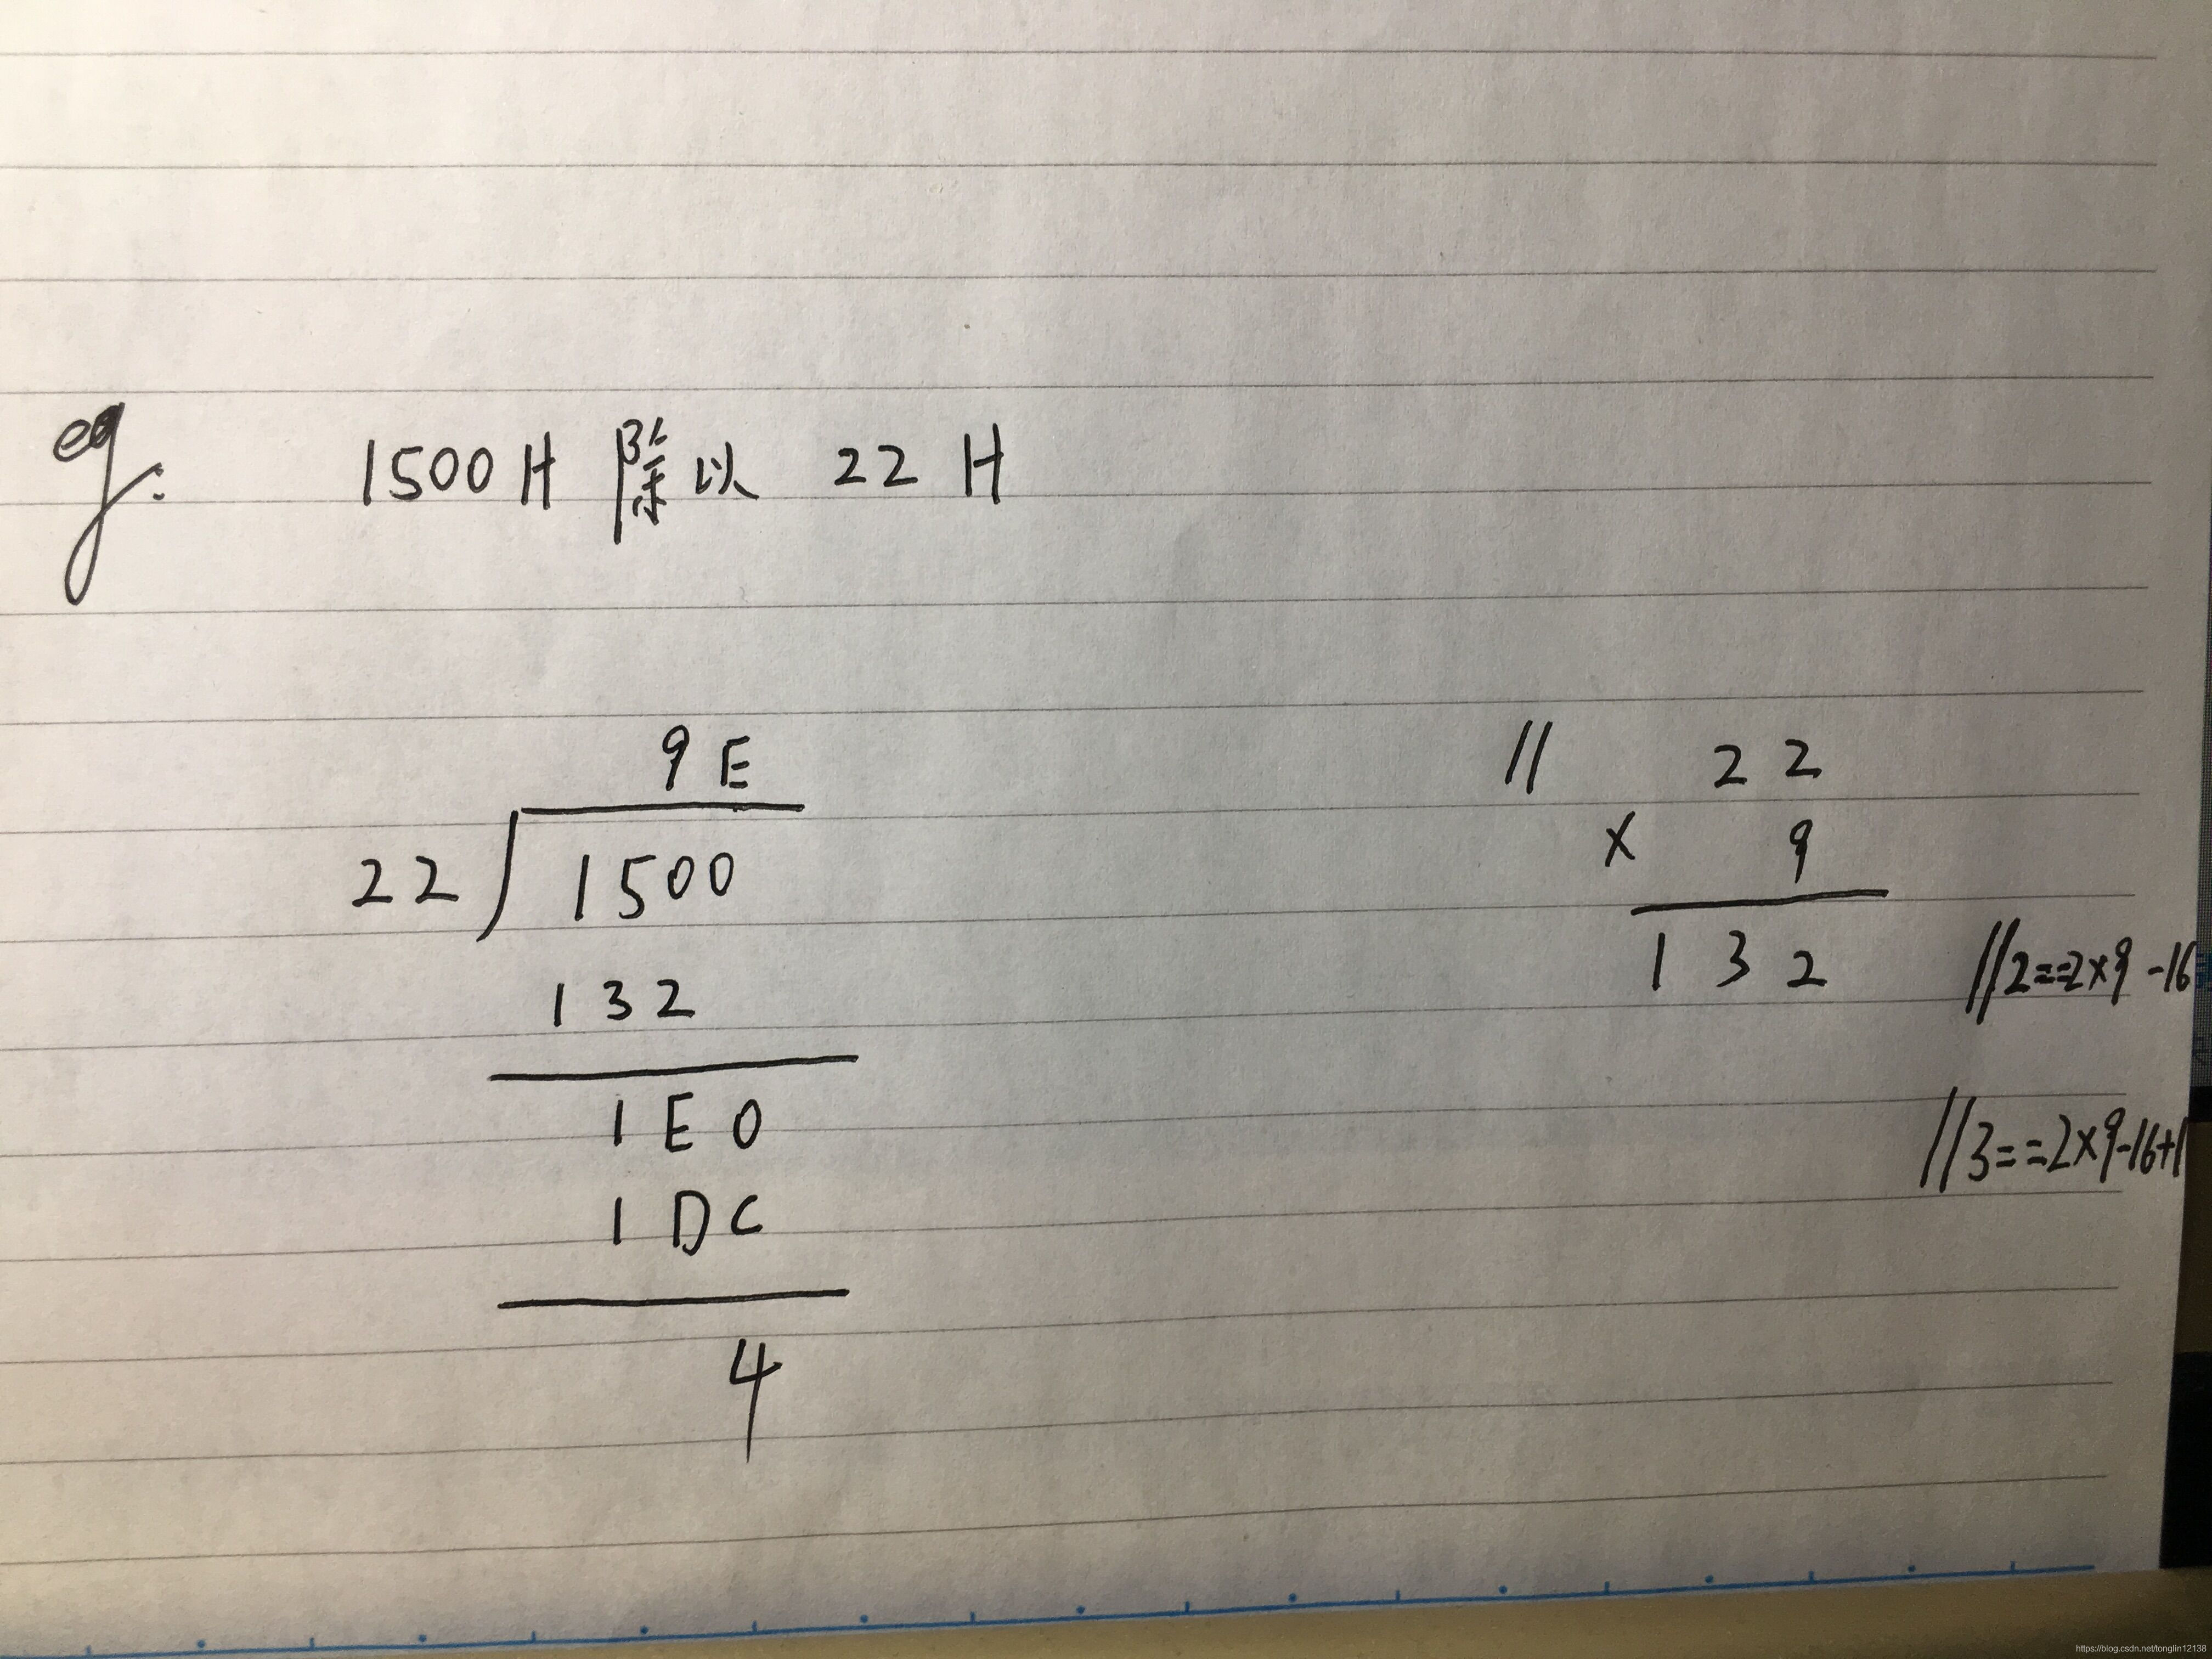 eg:
1500H 除以 22 H
9E
22 1500
132
1E0
1DC
4
// 22
× 9
132 //2==2×9-16
//3==2×9-16+1
https://blog.csdn.net/tonglin12138